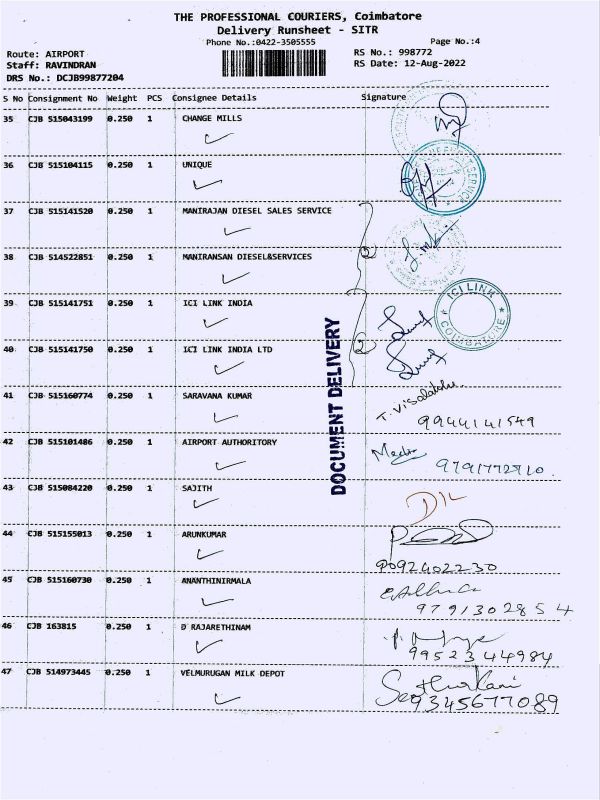 THE PROFESSIONAL COURIERS, Coimbatore
Delivery Runsheet - SITR
Phone No.:0422-3505555 Page No.:4
Route: AIRPORT RS No.: 998772
Staff: RAVINDRAN RS Date: 12-Aug-2022
DRS No.: DCJB99877204
S No Consignment No Weight PCS Consignee Details Signature
35 CJB 515043199 0.250 1 CHANGE MILLS
36 CJB 515104115 0.250 1 UNIQUE
37 CJB 515141520 0.250 1 MANIRAJAN DIESEL SALES SERVICE
2
38 CJB 514522851 0.250 1 MANIRANSAN DIESEL&SERVICES
39 CJB 515141751 0.250 1 ICI LINK INDIA
ICI LINK
COIMBATORE
2
40 CJB 515141750 0.250 1 ICI LINK INDIA LTD
DOCUMENT DELIVERY
41 CJB 515160774 0.250 1 SARAVANA KUMAR
T. Visalakshi
9944141549
42 CJB 515101486 0.250 1 AIRPORT AUTHORITORY
9791772910.
43 CJB 515084220 0.250 1 SAJITH
D/L
44 CJB 515155013 0.250 1 ARUNKUMAR
9092402230
45 CJB 515160730 0.250 1 ANANTHINIRMALA
9791302854
46 CJB 163815 0.250 1 D RAJARETHINAM
9952344984
47 CJB 514973445 0.250 1 VELMURUGAN MILK DEPOT
9345677089